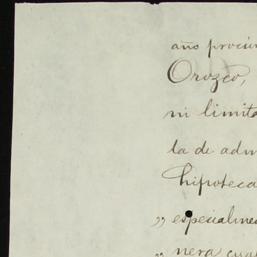 año procsi
Orozco,
ni limita
la de adm
hipoteca
" especialmen
" nera cual